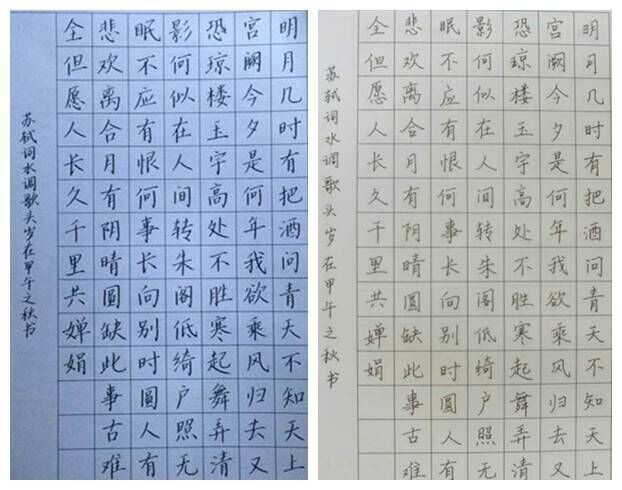 明月几时有把酒问青天不知天上
宫阙今夕是何年我欲乘风归去又
恐琼楼玉宇高处不胜寒起舞弄清
影何似在人间转朱阁低绮户照无
眠不应有恨何事长向别时圆人有
悲欢离合月有阴晴圆缺此事古难
全但愿人长久千里共婵娟
苏轼词水调歌头岁在甲午之秋书
明月几时有把酒问青天不知天上
宫阙今夕是何年我欲乘风归去又
恐琼楼玉宇高处不胜寒起舞弄清
影何似在人间转朱阁低绮户照无
眠不应有恨何事长向别时圆人有
悲欢离合月有阴晴圆缺此事古难
全但愿人长久千里共婵娟
苏轼词水调歌头岁在甲午之秋书